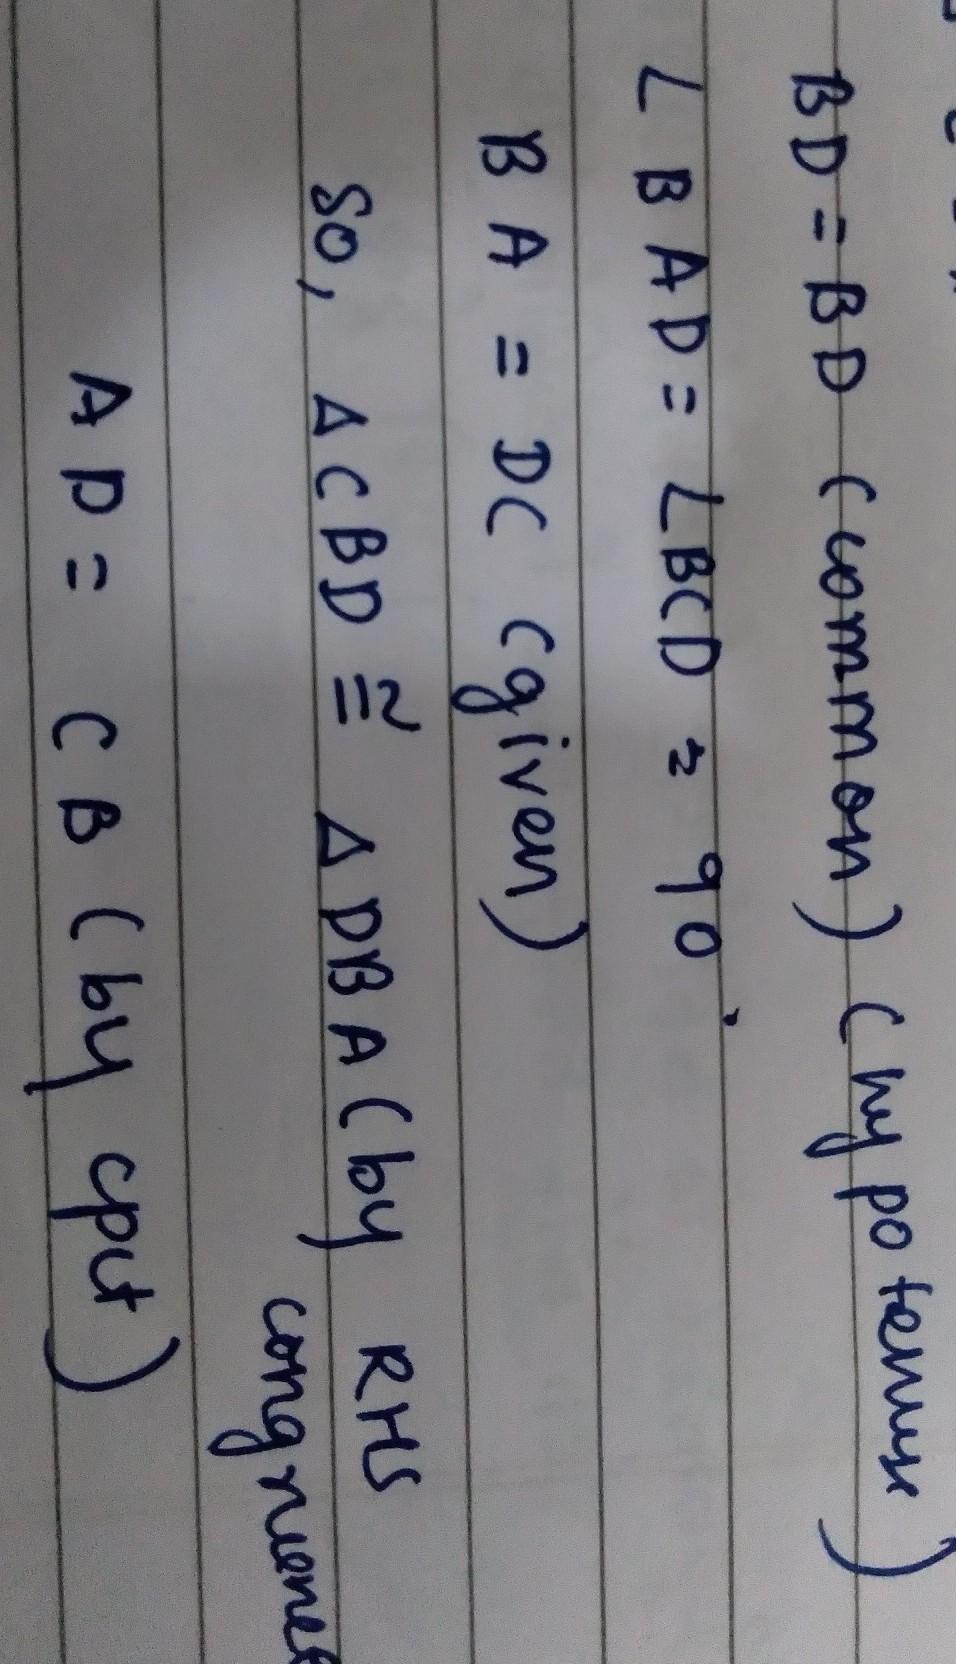 BD = BD (common) (hypotenuse)
∠BAD = ∠BCD = 90°
BA = DC (given)
So, ΔCBD ≅ ΔDBA (by RHS
congruence
AD = CB (by cpct)